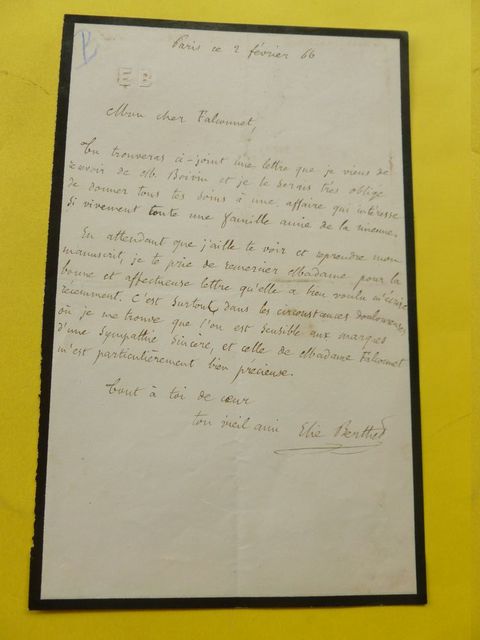 Paris ce 2 février 66
E B
Mon cher Falconnet,
Tu trouveras ci-joint une lettre que je viens de
recevoir de M. Boivin et je te serais très obligé
de donner tous tes soins à une affaire qui intéresse
si vivement toute une famille amie de la mienne.
En attendant que j'aille te voir et reprendre mon
manuscrit, je te prie de remercier Madame pour la
bonne et affectueuse lettre qu'elle a bien voulu m'écrire
récemment. C'est surtout dans les circonstances douloureuses
où je me trouve que l'on est sensible aux marques
d'une sympathie sincère, et celle de Madame Falconnet
m'est particulièrement bien précieuse.
Tout à toi de cœur
ton vieil ami Elie Berthet